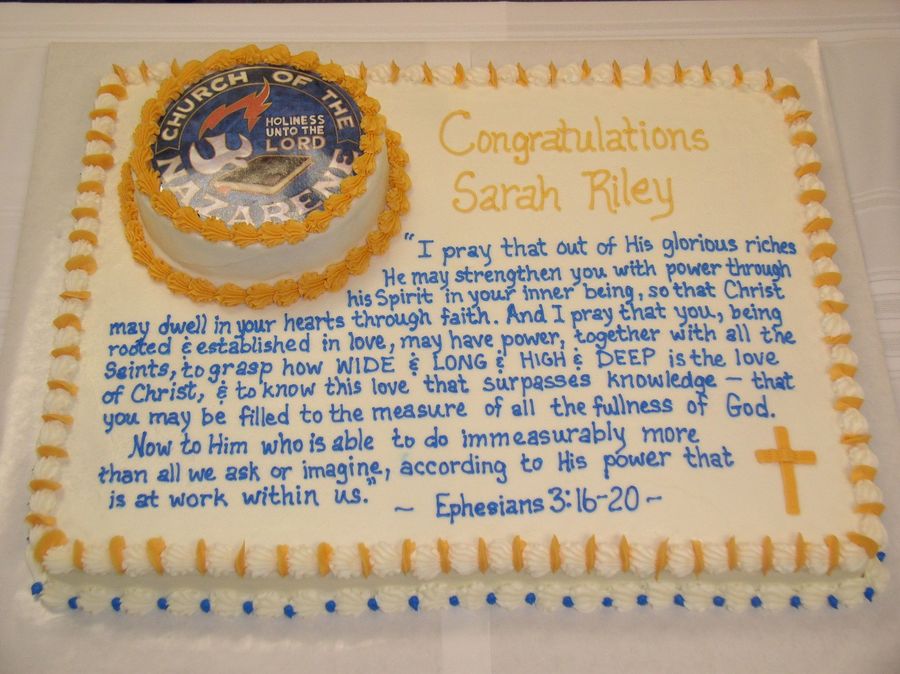 CHURCH OF THE
NAZARENE
HOLINESS
UNTO THE
LORD
Congratulations
Sarah Riley
"I pray that out of His glorious riches
He may strengthen you with power through
his Spirit in your inner being, so that Christ
may dwell in your hearts through faith. And I pray that you, being
rooted & established in love, may have power, together with all the
Saints, to grasp how WIDE & LONG & HIGH & DEEP is the love
of Christ, & to know this love that surpasses knowledge – that
you may be filled to the measure of all the fullness of God.
Now to Him who is able to do immeasurably more
than all we ask or imagine, according to His power that
is at work within us."
~ Ephesians 3:16-20 ~